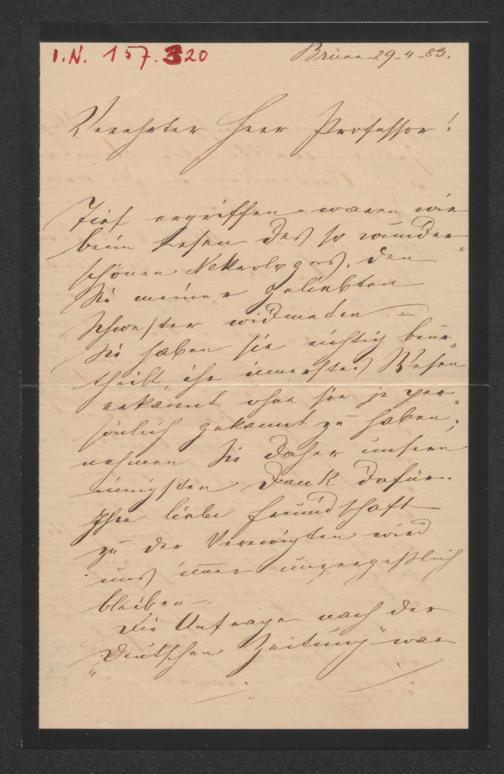 I.N. 157.320
Brünn 29-4-83.
Verehrter Herr Professor!
Tief ergriffen waren wir
beim Lesen des so wunder-
schönen Nekrologes, den
Sie meiner geliebten
Schwester widmeten –
Sie haben sie richtig beur-
theilt, ihr innerstes Wesen
erkannt ohne sie je per-
sönlich gekannt zu haben,
nehmen Sie daher unsern
innigsten Dank dafür.
Ihre liebe Freundschaft
zu der Verewigten wird
uns immer unvergeßlich
bleiben.
Die Anfrage nach der
"Deutschen Zeitung" war